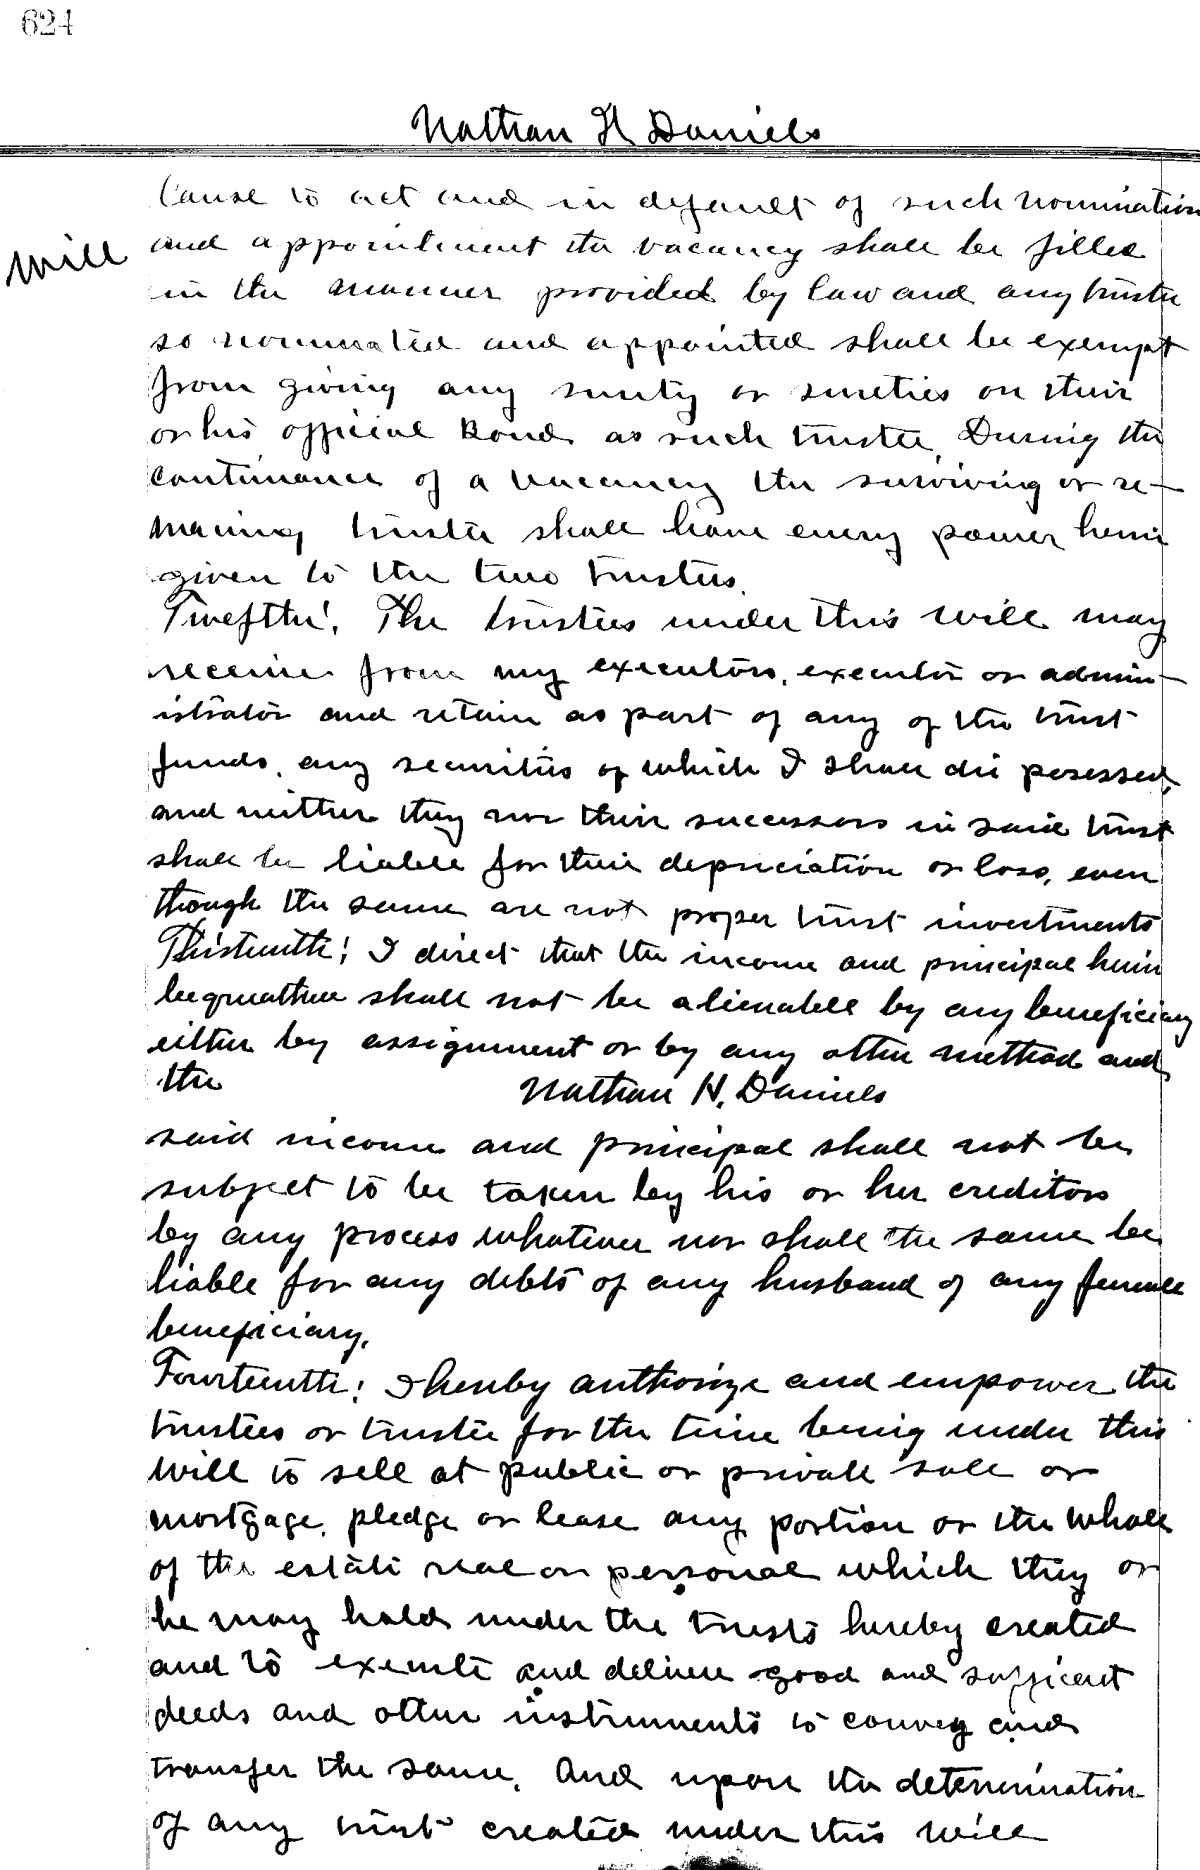 624
Nathan H Daniels
Will
cause to act and in default of such nomination
and appointment the vacancy shall be filled
in the manner provided by law and any trustee
so nominated and appointed shall be exempt
from giving any surety or sureties on their
or his official bond as such trustee. During the
continuance of a vacancy the surviving or re-
maining trustee shall have every power herein
given to the two trustees.
Twelfth: The trustees under this will may
receive from my executors, executor or admin-
istrator and retain as part of any of the trust
funds, any securities of which I shall die posessed,
and neither they nor their successors in said trust
shall be liable for their depreciation or loss, even
though the same are not proper trust investments
Thirteenth: I direct that the income and principal herein
bequeathed shall not be alienable by any beneficiary
either by assignment or by any other method and
the
Nathan H. Daniels
said income and principal shall not be
subject to be taken by his or her creditors
by any process whatever nor shall the same be
liable for any debts of any husband of any female
beneficiary.
Fourteenth: I hereby authorize and empower the
trustees or trustee for the time being under this
will to sell at public or private sale or
mortgage, pledge or lease any portion or the whole
of the estate real or personal which they or
he may hold under the trusts hereby created
and to execute and deliver good and sufficient
deeds and other instruments to convey and
transfer the same. And upon the determination
of any trust created under this will